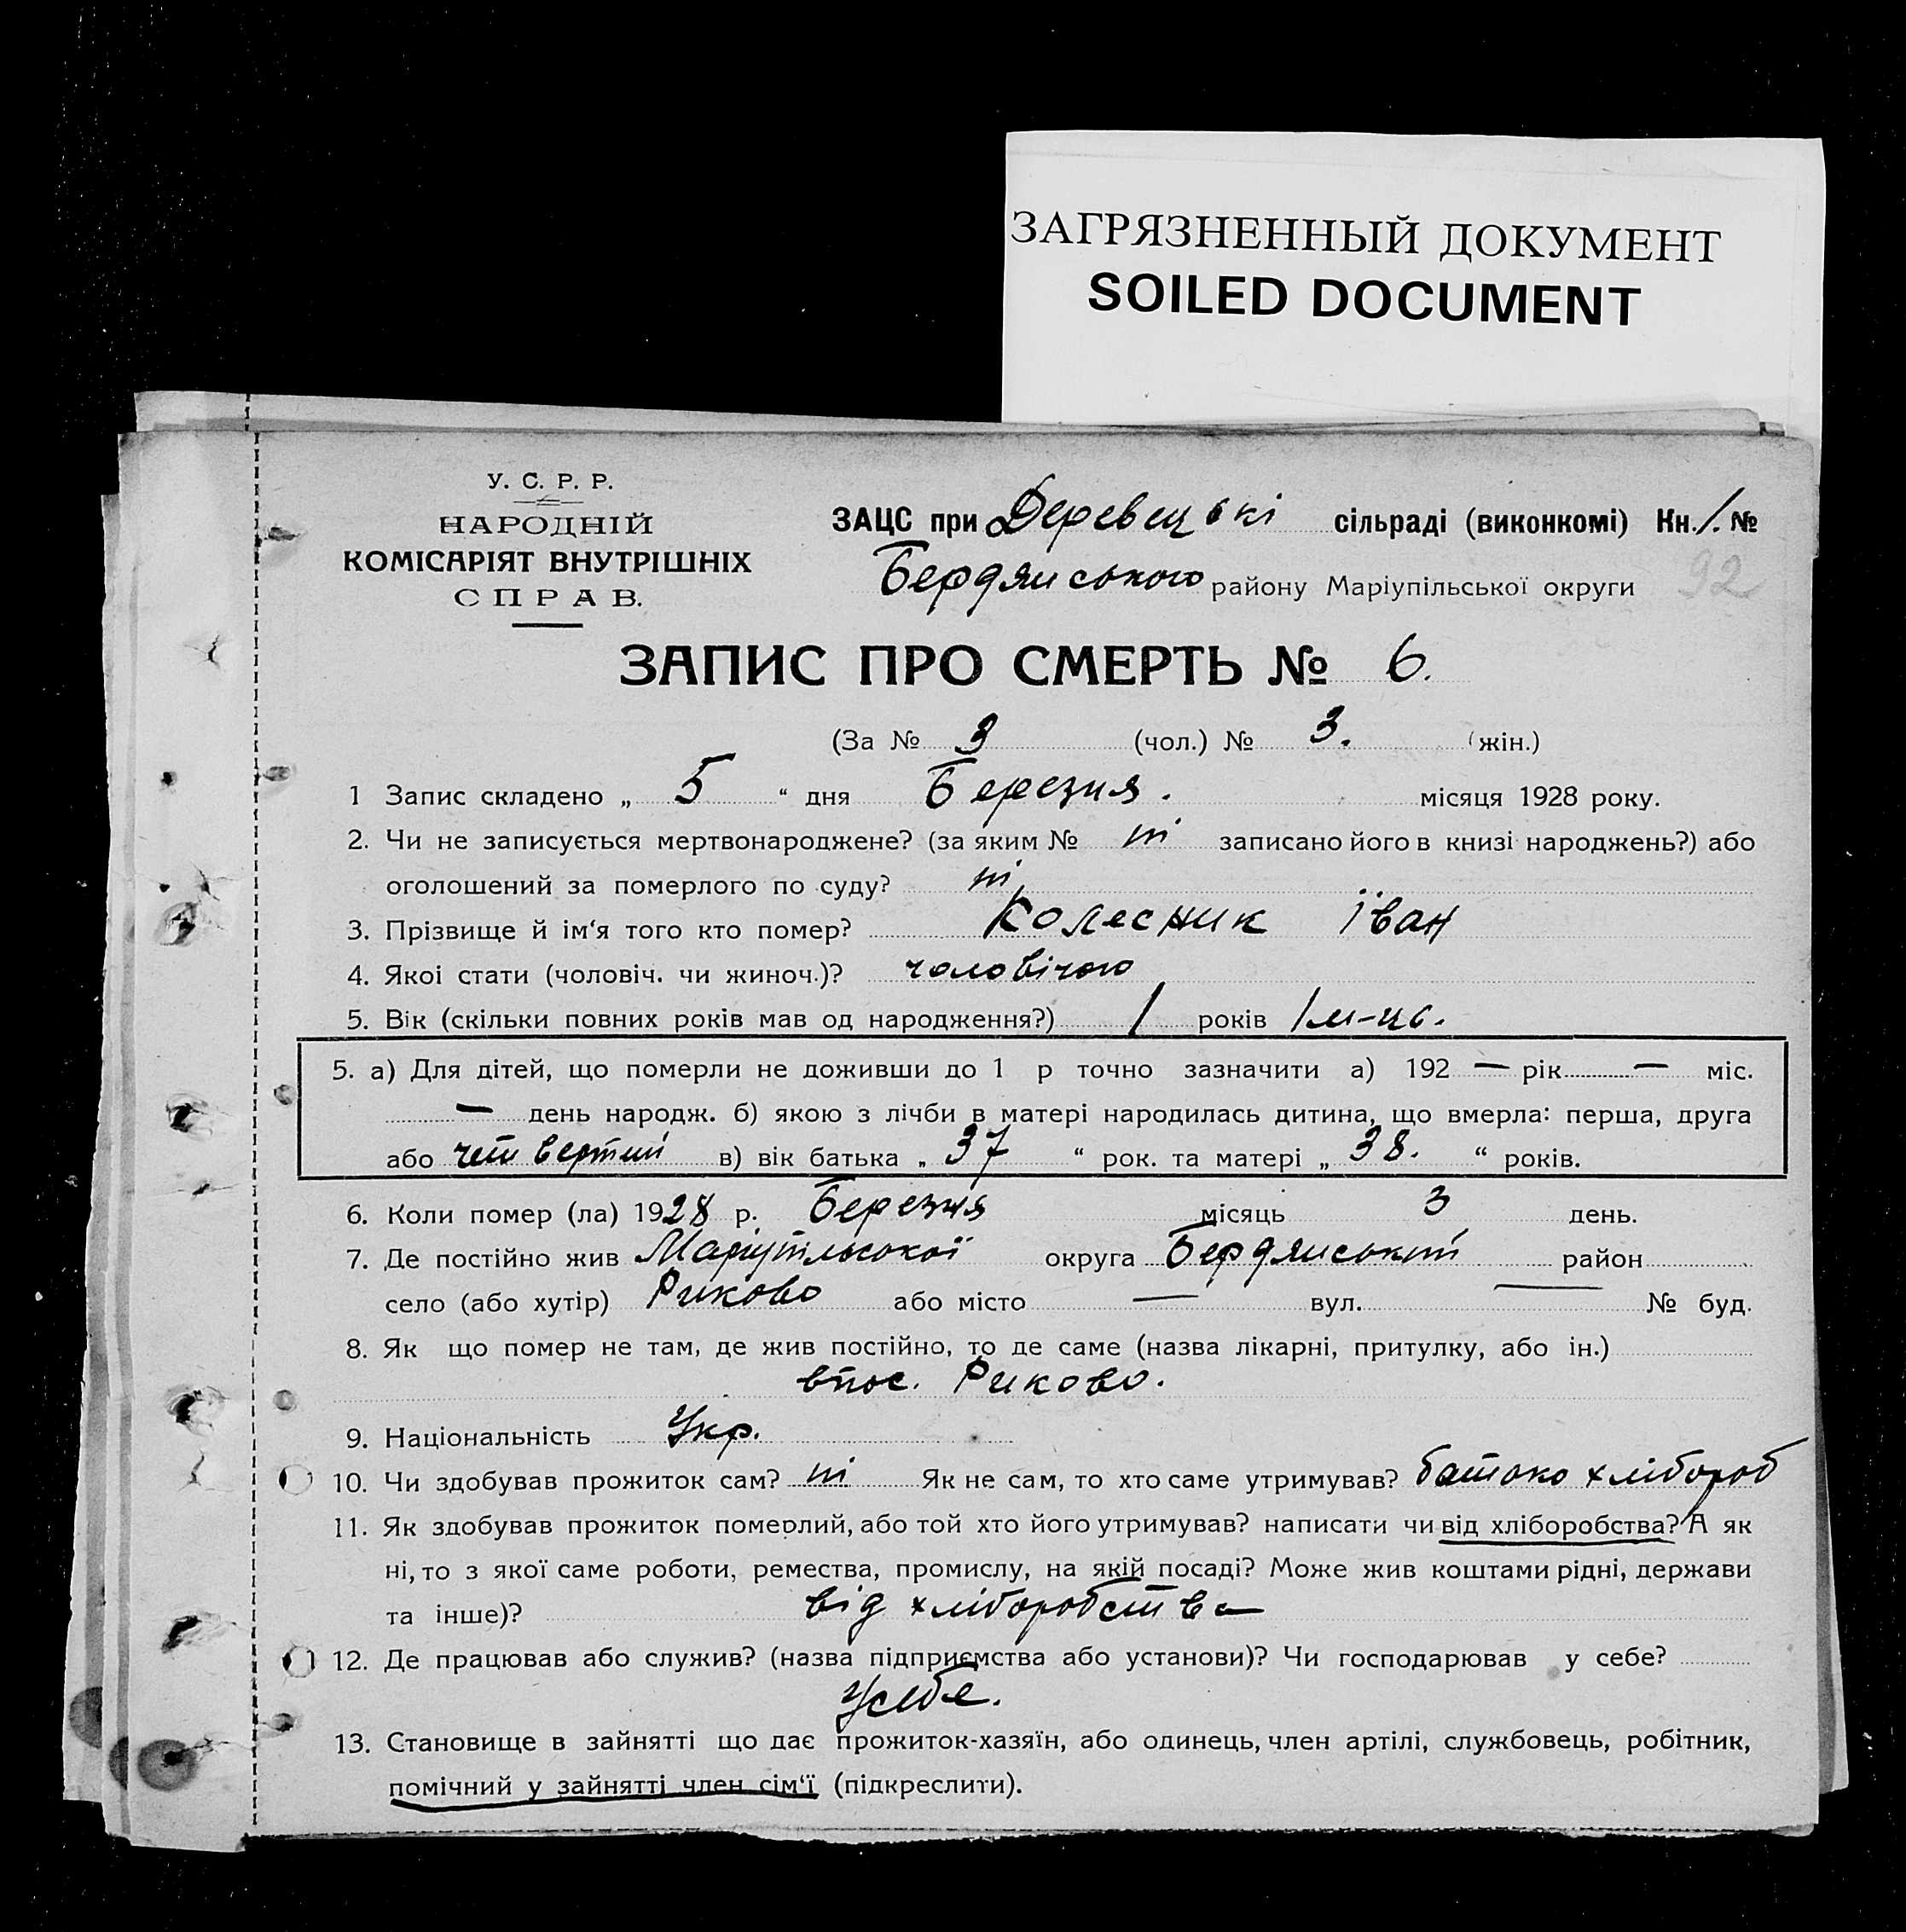 ЗАГРЯЗНЕННЫЙ ДОКУМЕНТ
SOILED DOCUMENT
У. С. Р. Р.
НАРОДНІЙ
КОМІСАРІЯТ ВНУТРІШНІХ
СПРАВ.
ЗАЦС при Деревецькі сільраді (виконкомі) Кн. 1. №
Бердянського району Маріупільської округи 92
ЗАПИС ПРО СМЕРТЬ № 6.
(За № 3 (чол.) № 3. (жін.)
1 Запис складено „ 5 “ дня Березня. місяця 1928 року.
2. Чи не записується мертвонароджене? (за яким № ні записано його в книзі народжень?) або
оголошений за померлого по суду? ні
3. Прізвище й ім‘я того кто помер? Колесник Іван
4. Якоі стати (чоловіч. чи жиноч.)? чоловічого
5. Вік (скільки повних років мав од народження?) 1 років 1 м-ць.
5. а) Для дітей, що померли не доживши до 1 р точно зазначити а) 192 — рік — міс.
— день народж. б) якою з лічби в матері народилась дитина, що вмерла: перша, друга
або четвертий в) вік батька „ 37 “ рок. та матері „ 38. “ років.
6. Коли помер (ла) 1928 р. Березня місяць 3 день.
7. Де постійно жив Маріупільської округа Бердянський район
село (або хутір) Риково або місто — вул. — № буд.
8. Як що помер не там, де жив постійно, то де саме (назва лікарні, притулку, або ін.)
в пос. Риково.
9. Національність Укр.
10. Чи здобував прожиток сам? ні Як не сам, то хто саме утримував? батько хлібороб
11. Як здобував прожиток померлий, або той хто його утримував? написати чи від хліборобства? А як
ні, то з якої саме роботи, ремества, промислу, на якій посаді? Може жив коштами рідні, держави
та інше)? від хліборобства
12. Де працював або служив? (назва підприємства або установи)? Чи господарював у себе?
У себе.
13. Становище в зайнятті що дає прожиток-хазяїн, або одинець, член артілі, службовець, робітник,
помічний у зайнятті член сім‘ї (підкреслити).